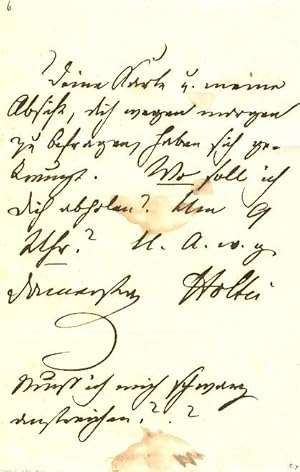 6
Deine Karte u. meine
Absicht, dich wegen morgen
zu befragen, haben sich ge-
kreuzt. Wo soll ich
dich abholen? Um 9
Uhr? U. A. w. g.
Donnerstag Holtei
Muss ich mich schwarz
anstreichen? ?